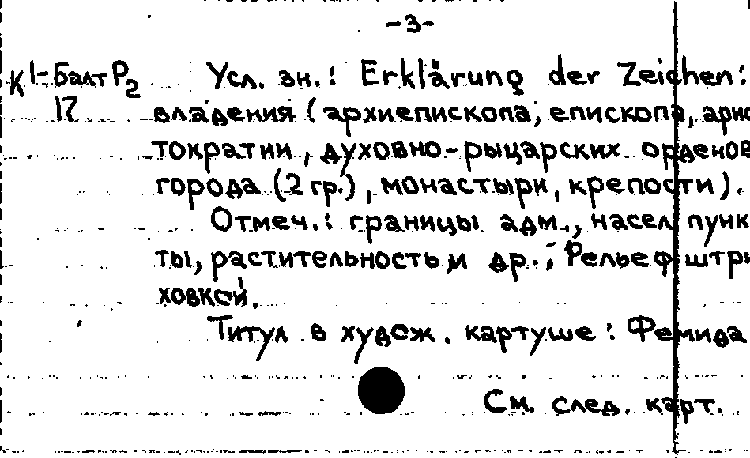 -3-
К 1-Балт Р2 Усл. зн.: Erklärung der Zeichen:
17 владения (архиепископа, епископа, арис
тократии, духовно-рыцарских орденов
города (2 гр.), монастыри, крепости).
Отмеч.: границы адм., насел пунк
ты, растительность и др.; Рельеф штри
ховкой.
Титул в худож. картуше: Фемида
См. след. карт.